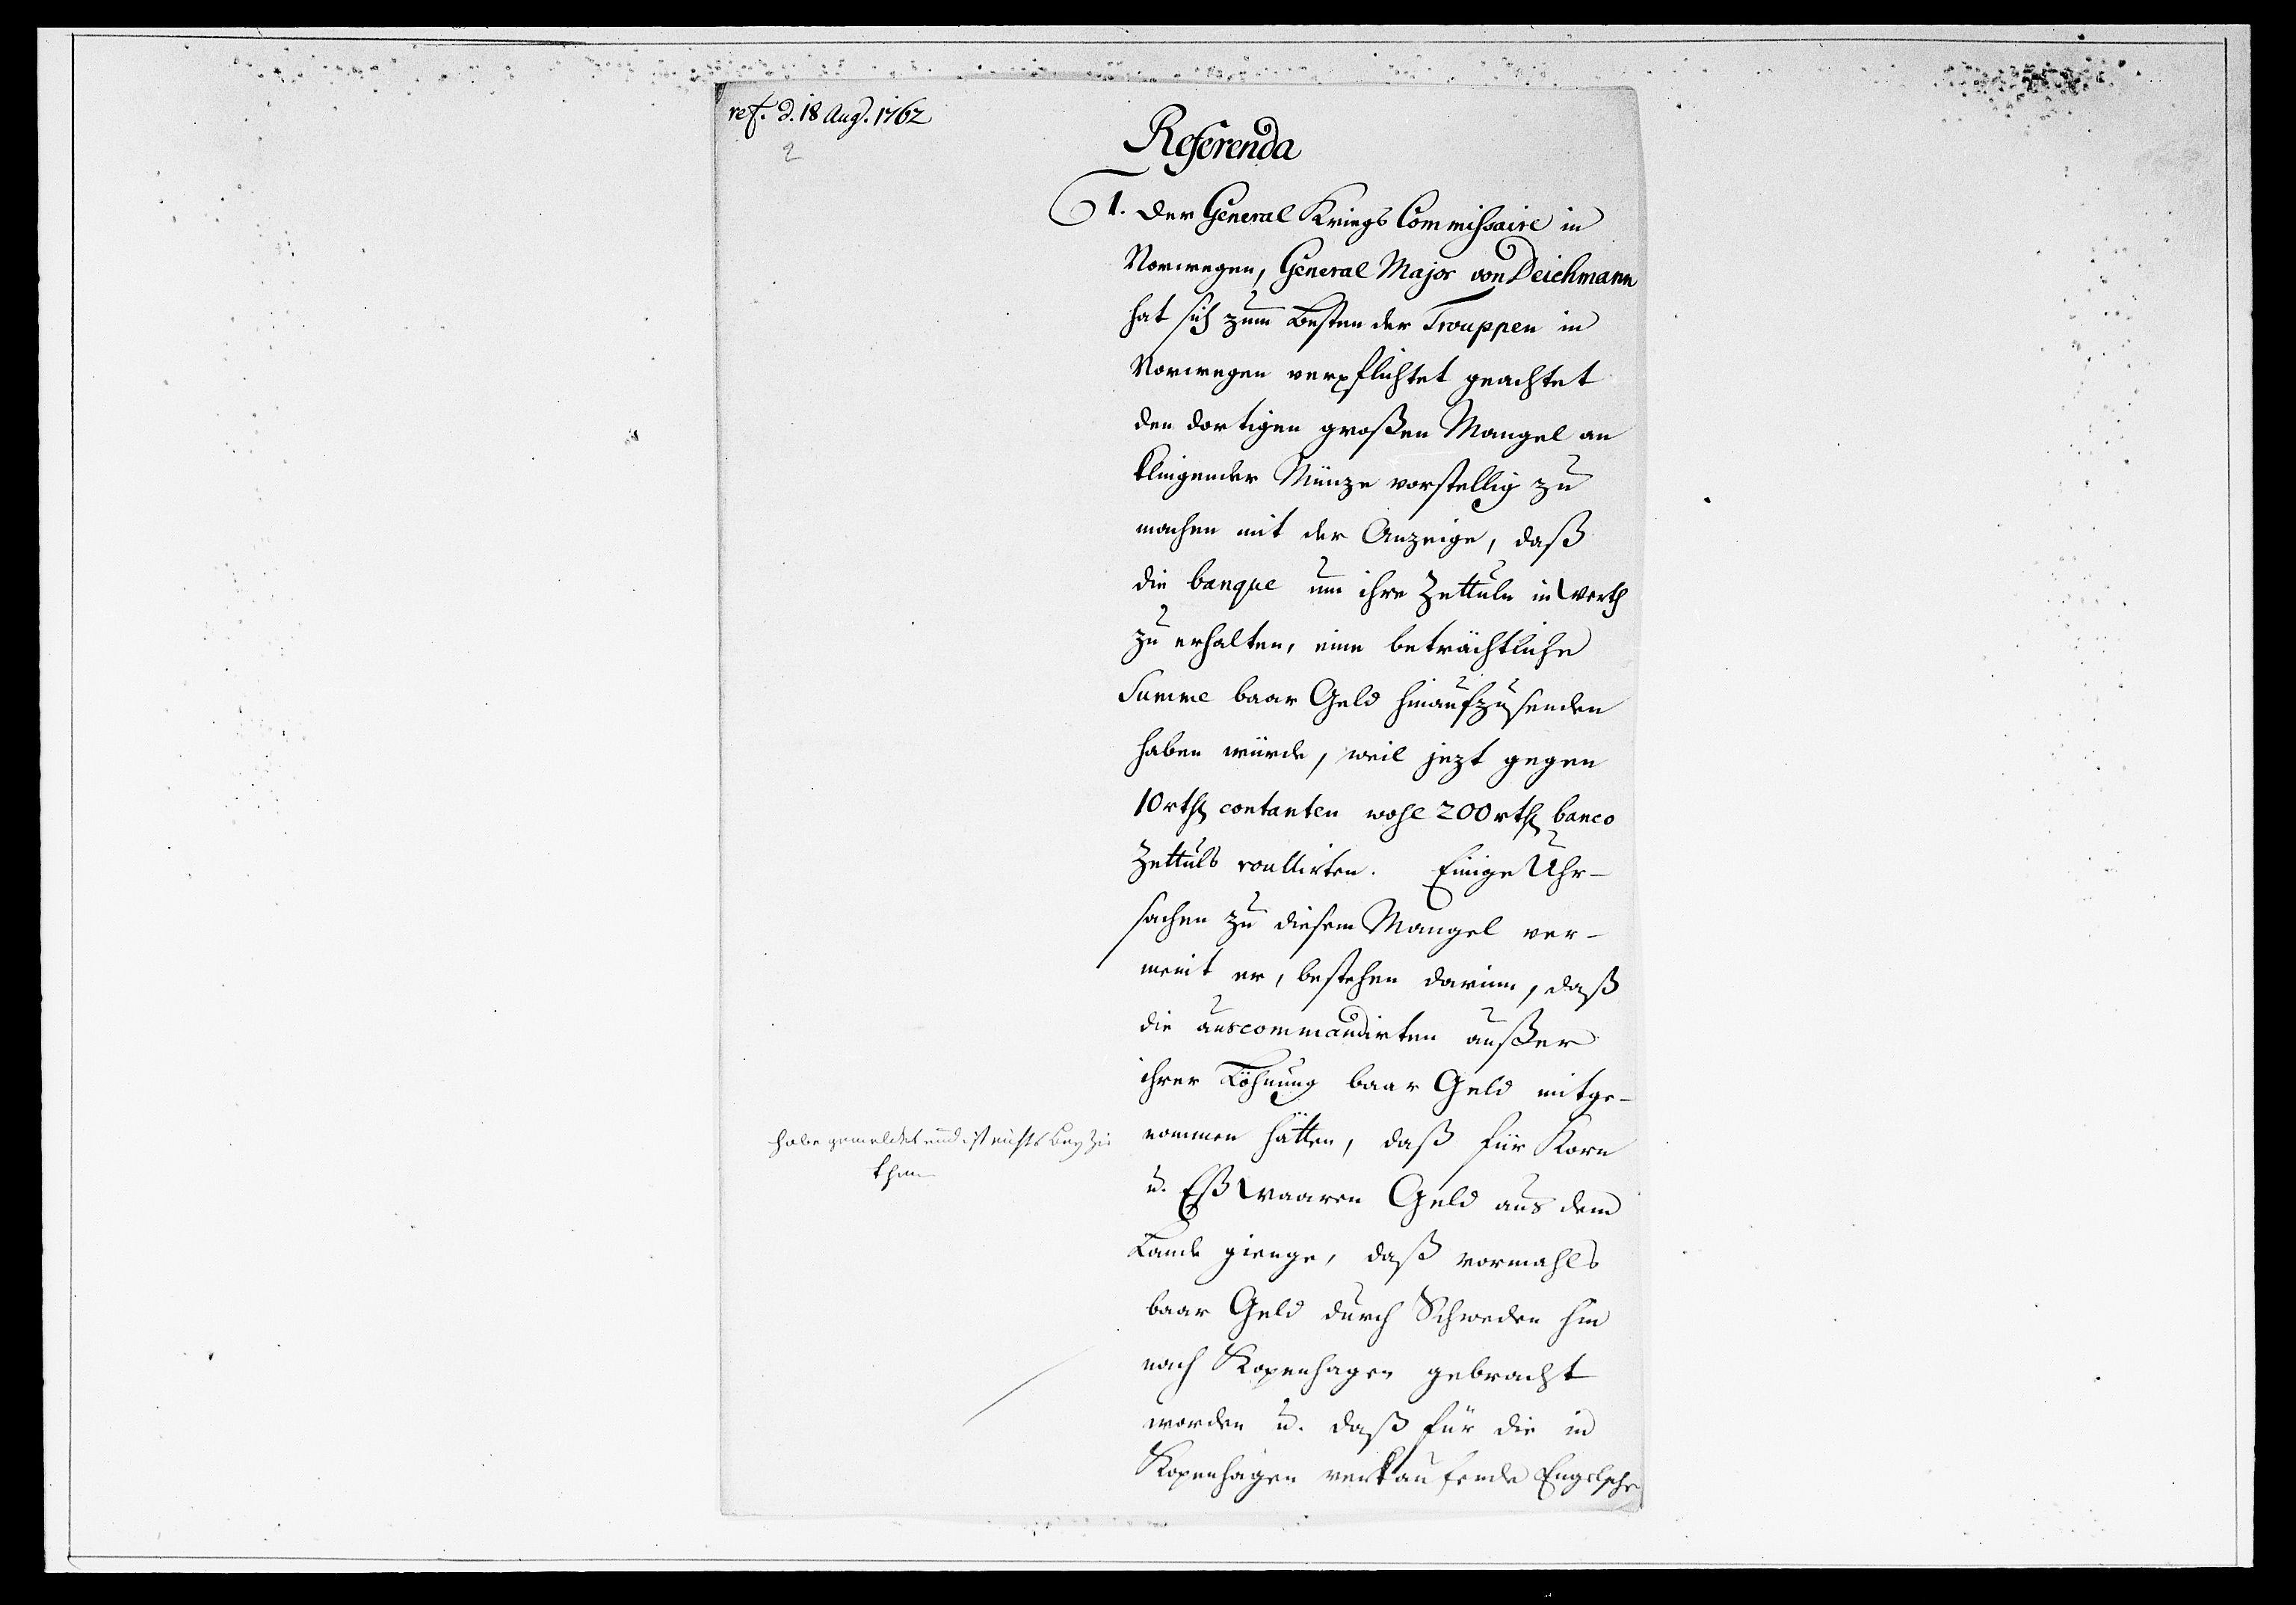 ref. d. 18 Aug. 1762
2
Referenda
1. Der General Kriegs Commissaire in
Norwegen, General Major von Deichmann
hat sich zum Besten der Trouppen in
Norwegen verpflichtet geachtet
den dortigen großen Mangel an
klingender Münze vorstellig zu
machen mit der Anzeige, daß
die banque um ihre Zettuln in Werth
zu erhalten, eine beträchtliche
Summe baar Geld hinaufzusenden
haben würde, weil jezt gegen
10 rthl contanten wohl 200 rthl banco
Zettuls roullirten. Einige Uhr-
sachen zu diesem Mangel ver-
meint er, bestehen darinn, daß
die auscommandirten außer
ihrer Löhnung baar Geld mitge-
nommen hätten, daß für Korn
u. Eß Waaren Geld aus dem
Lande gienge, daß vormahls
baar Geld durch Schweden hin
nach Kopenhagen gebracht
worden u. daß für die in
Kopenhagen verkaufende Engelsche
habe gemeldet und ist nichts bey zu
thun